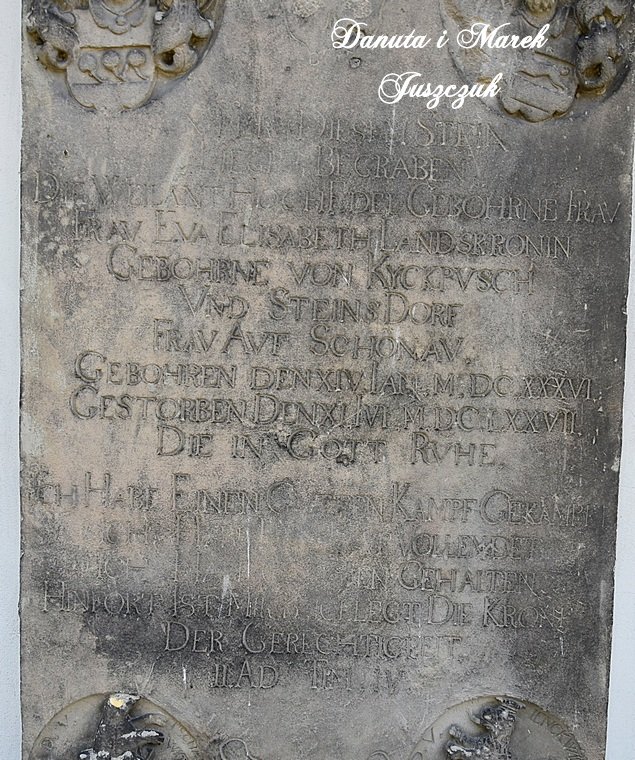 Danuta i Marek
Juszczuk
DIESEN STEIN
BEGRABEN
DIE WEILANT HOCHEDEL GEBOHRNE FRAV
FRAV EVA ELISABETH LANDSKRONIN
GEBOHRNE VON KYCKPVSCH
VND STEINSDORF
FRAV AVF SCHÖNAV,
GEBOHREN DEN XIV IAN. M. DC. XXXVI.
GESTORBEN DEN XI. IVL. M. DC. LXXVII.
DIE IN GOTT RVHE.
ICH HABE EINEN GVTEN KAMPF GEKÄMPF
ICH VOLLENDET
ICH GEHALTEN
HINFORT IST MIR GELEGT DIE KRONE
DER GERECHTIGKEIT
II. AD TIM. IV